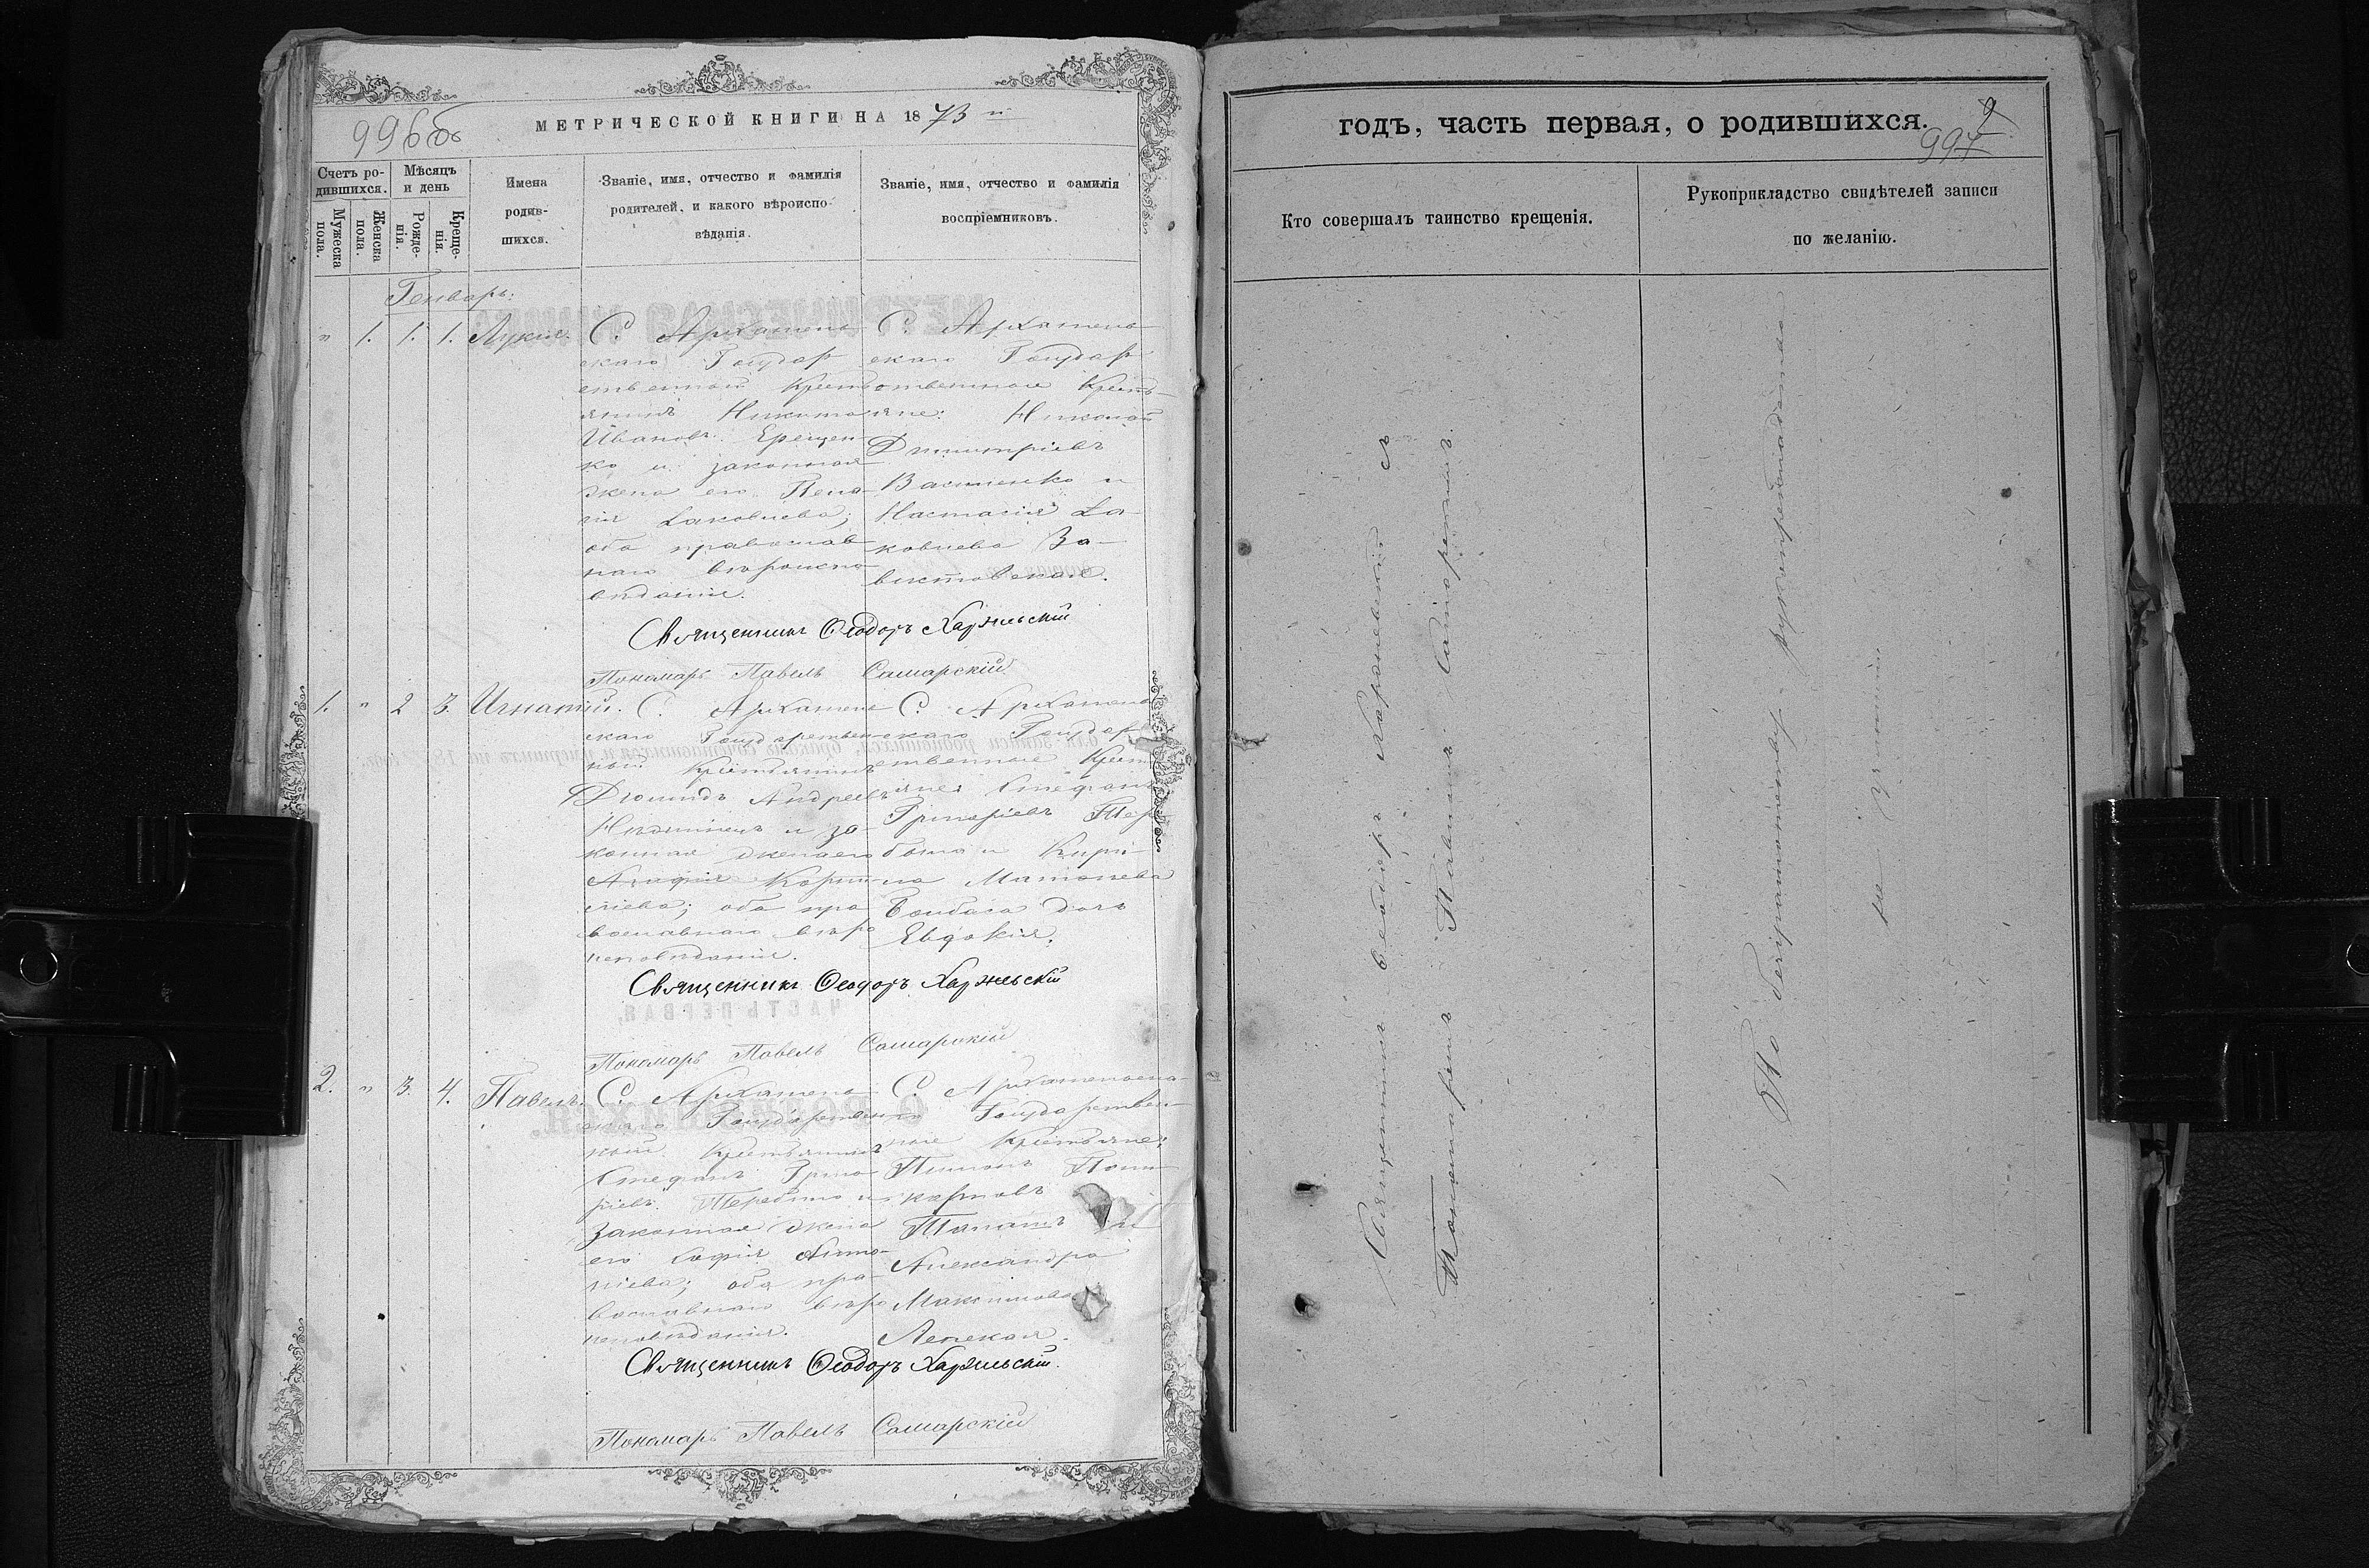 996об
МЕТРИЧЕСКОЙ КНИГИ НА 1873й
Счетъ ро-
дившихся.
Мѣсяцъ
и день
Мужеска
пола.
Женска
пола.
Рожде-
нія.
Креще-
нія.
Имена
родив-
шихся.
Званіе, имя, отчество и фамилія
родителей, и какого вѣроиспо-
вѣданія.
Званіе, имя, отчество и фамилія
воспріемниковъ.
Генварь:
" 1. 1. 1. Лукія.
С. Архангель-
скаго Государ
ственный Кресть
янинъ Никита
Ивановъ Ерещен-
ко и законная
жена его Пела-
гія Іаковлева;
оба православ-
наго вѣроиспо-
вѣданія.
С. Архангель-
скаго Государ
ственные Кресть-
яне: Николай
Димитріевъ
Василенко и
Настасія Іа-
ковлева За-
вистовская.
Священникъ Ѳеодоръ Харжевскій
Пономарь Павелъ Самарскій
1. " 2 3. Игнатій.
С. Архангель
скаго Государствен
ный Крестьянинъ
Діомидъ Андреевъ
и за-
конная жена его
Агафія Корни-
лiева; оба пра
вославнаго вѣро
исповѣданія.
С. Архангель
скаго Государ
ственные Кресть
яне: Стефанъ
Григоріевъ
и Кири-
ла Матвѣева
дочь
Евдокія.
Священникъ Ѳеодоръ Харжевскій
Пономарь Павелъ Самарскій
2. " 3. 4. Павелъ.
С. Архангель-
скаго Государствен
ный Крестьянинъ
Стефанъ Григо-
ріевъ и
законная жена
его Софія Анто-
ніева; оба пра-
вославнаго вѣро
исповѣданія.
С. Архангельска-
го Государствен-
ные Крестьяне:
Пименъ Поли-
карповъ
и
Александра
Максимова
Священникъ Ѳеодоръ Харжевскій.
Пономарь Павелъ Самарскій
годъ, часть первая, о родившихся.
2
997
Кто совершалъ таинство крещенія.
Рукоприкладство свидѣтелей записи
по желанію.
Священникъ Ѳеодоръ Харжевскій съ
Пономаремъ Павломъ Самарскимъ.
По безграмотству рукоприкладства
не учинили